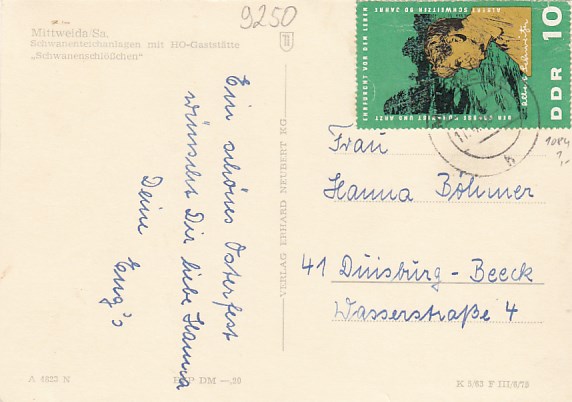 9250
Mittweida Sa.
Schwanenteichanlagen mit HO-Gaststätte
„Schwanenschlößchen"
Ein schönes Osterfest
wünscht Dir liebe Hanna
Deine Eng's
VERLAG ERHARD NEUBERT KG
A 4822 N
DM —,20
ALBERT SCHWEITZER 90 JAHRE
EHRFURCHT VOR DEM LEBEN
DDR 10
1084
1,-
Frau
Hanna Böhmer
41 Duisburg - Beeck
Wasserstraße 4
K 5/63 F III/6/75